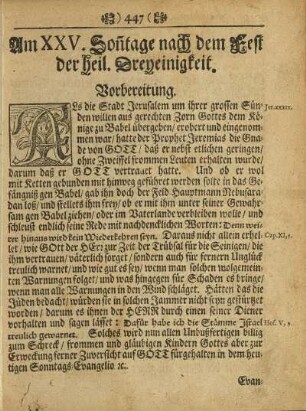 447
Am XXV. Sontage nach dem Fest
der heil. Dreyeinigkeit.
Vorbereitung.
ALs die Stadt Jerusalem um ihrer grossen Sün-
den willen aus gerechten Zorn Gottes dem Kö-
nige zu Babel übergeben, erobert und eingenom-
men war, hatte der Prophet Jeremias die Gna-
de von GOTT, daß er nebst etlichen geringen,
ohne Zweiffel frommen Leuten erhalten wurde,
darum daß er GOTT vertrauet hatte. Und ob er wol
mit Ketten gebunden mit hinweg geführet werden solte in das Ge-
fängniß gen Babel, gab ihn doch der Feld Hauptmann Nebusara-
dan loß, und stellets ihm frey, ob er mit ihm unter seiner Gewahr-
sam gen Babel ziehen, oder im Vaterlande verbleiben wolle, und
schleust endlich seine Rede mit nachdencklichen Worten: Denn weiter
hinaus wird kein Wiederkehren seyn. Daraus nicht allein erhel-
let, wie GOtt der HErr zur Zeit der Trübsal für die Seinigen, die
ihm vertrauen, väterlich sorget, sondern auch für fernern Unglück
treulich warnet, und wie gut es sey, wenn man solchen wolgemein-
ten Warnungen folget, und was hingegen für Schaden es bringe,
wenn man alle Warnungen in den Wind schläget. Hätten das die
Jüden bedacht, würden sie in solchen Jammer nicht seyn gestürtzet
worden, darum es ihnen der HERR durch einen seiner Diener
vorhalten und sagen lässet: Dafür habe ich die Stämme Israel
treulich gewarnet. Solches wird nun allen Unbußfertigen billig
zum Schreck, frommen und gläubigen Kindern Gottes aber zur
Erweckung ferner Zuversicht auf GOTT fürgehalten in dem heu-
tigen Sonntags-Evangelio &c.
Evan-
Jer. XXXIX.
Cap. XL,
Hos. V, 9.